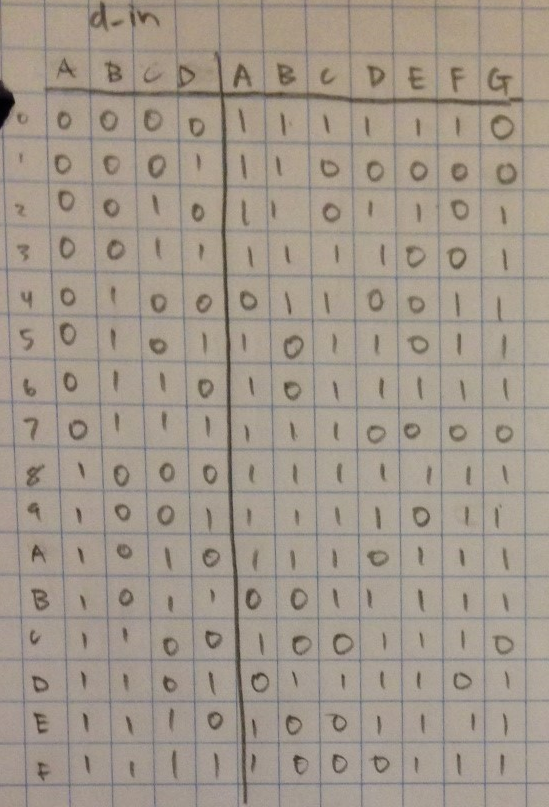 d-in
A B C D A B C D E F G
0 0 0 0 0 1 1 1 1 1 1 0
1 0 0 0 1 1 1 0 0 0 0 0
2 0 0 1 0 1 1 0 1 1 0 1
3 0 0 1 1 1 1 1 1 0 0 1
4 0 1 0 0 0 1 1 0 0 1 1
5 0 1 0 1 1 0 1 1 0 1 1
6 0 1 1 0 1 0 1 1 1 1 1
7 0 1 1 1 1 1 1 0 0 0 0
8 1 0 0 0 1 1 1 1 1 1 1
9 1 0 0 1 1 1 1 1 0 1 1
A 1 0 1 0 1 1 1 0 1 1 1
B 1 0 1 1 0 0 1 1 1 1 1
C 1 1 0 0 1 0 0 1 1 1 0
D 1 1 0 1 0 1 1 1 1 0 1
E 1 1 1 0 1 0 0 1 1 1 1
F 1 1 1 1 1 0 0 0 1 1 1